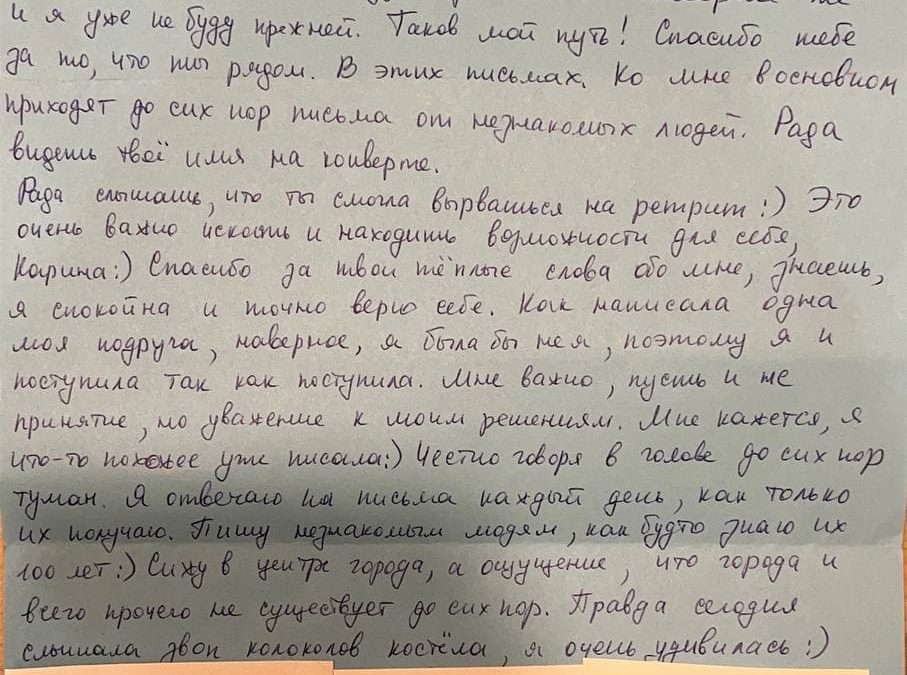 и я уже не буду прежней. Таков мой путь! Спасибо тебе
за то, что ты рядом. В этих письмах. Ко мне в основном
приходят до сих пор письма от незнакомых людей. Рада
видеть твоё имя на конверте.
Рада слышать, что ты смогла вырваться на ретрит:) Это
очень важно искать и находить возможности для себя,
Карина:) Спасибо за твои тёплые слова обо мне, знаешь,
я спокойна и точно верю себе. Как написала одна
моя подруга, наверное, я была бы не я, поэтому я и
поступила так как поступила. Мне важно, пусть и не
принятие, но уважение к моим решениям. Мне кажется, я
что-то похожее уже писала:) Честно говоря в голове до сих пор
туман. Я отвечаю на письма каждый день, как только
их получаю. Пишу незнакомым людям, как будто знаю их
100 лет:) Сижу в центре города, а ощущение, что города и
всего прочего не существует до сих пор. Правда сегодня
слышала звон колоколов костёла, я очень удивилась:)